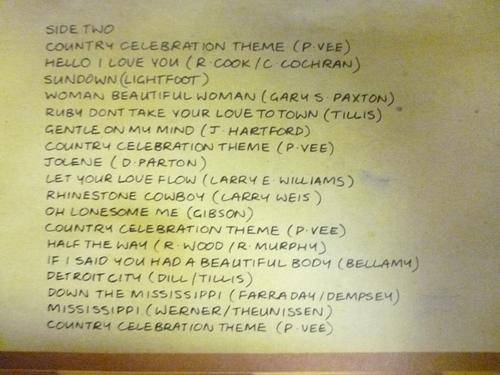 SIDE TWO
COUNTRY CELEBRATION THEME (P. VEE)
HELLO I LOVE YOU (R. COOK / C. COCHRAN)
SUNDOWN (LIGHTFOOT)
WOMAN BEAUTIFUL WOMAN (GARY S. PAXTON)
RUBY DONT TAKE YOUR LOVE TO TOWN (TILLIS)
GENTLE ON MY MIND (J. HARTFORD)
COUNTRY CELEBRATION THEME (P. VEE)
JOLENE (D. PARTON)
LET YOUR LOVE FLOW (LARRY E. WILLIAMS)
RHINESTONE COWBOY (LARRY WEIS)
OH LONESOME ME (GIBSON)
COUNTRY CELEBRATION THEME (P. VEE)
HALF THE WAY (R. WOOD / R. MURPHY)
IF I SAID YOU HAD A BEAUTIFUL BODY (BELLAMY)
DETROIT CITY (DILL / TILLIS)
DOWN THE MISSISSIPPI (FARRADAY / DEMPSEY)
MISSISSIPPI (WERNER / THEUNISSEN)
COUNTRY CELEBRATION THEME (P. VEE)